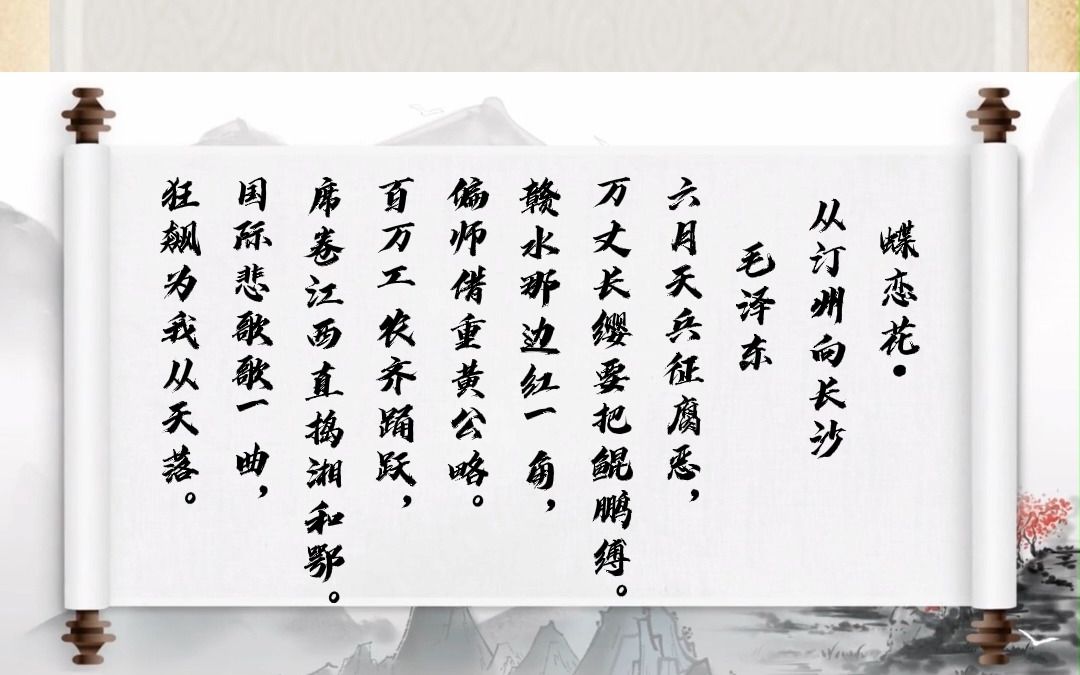 蝶恋花·
从汀州向长沙
毛泽东
六月天兵征腐恶，
万丈长缨要把鲲鹏缚。
赣水那边红一角，
偏师借重黄公略。
百万工农齐踊跃，
席卷江西直捣湘和鄂。
国际悲歌歌一曲，
狂飙为我从天落。